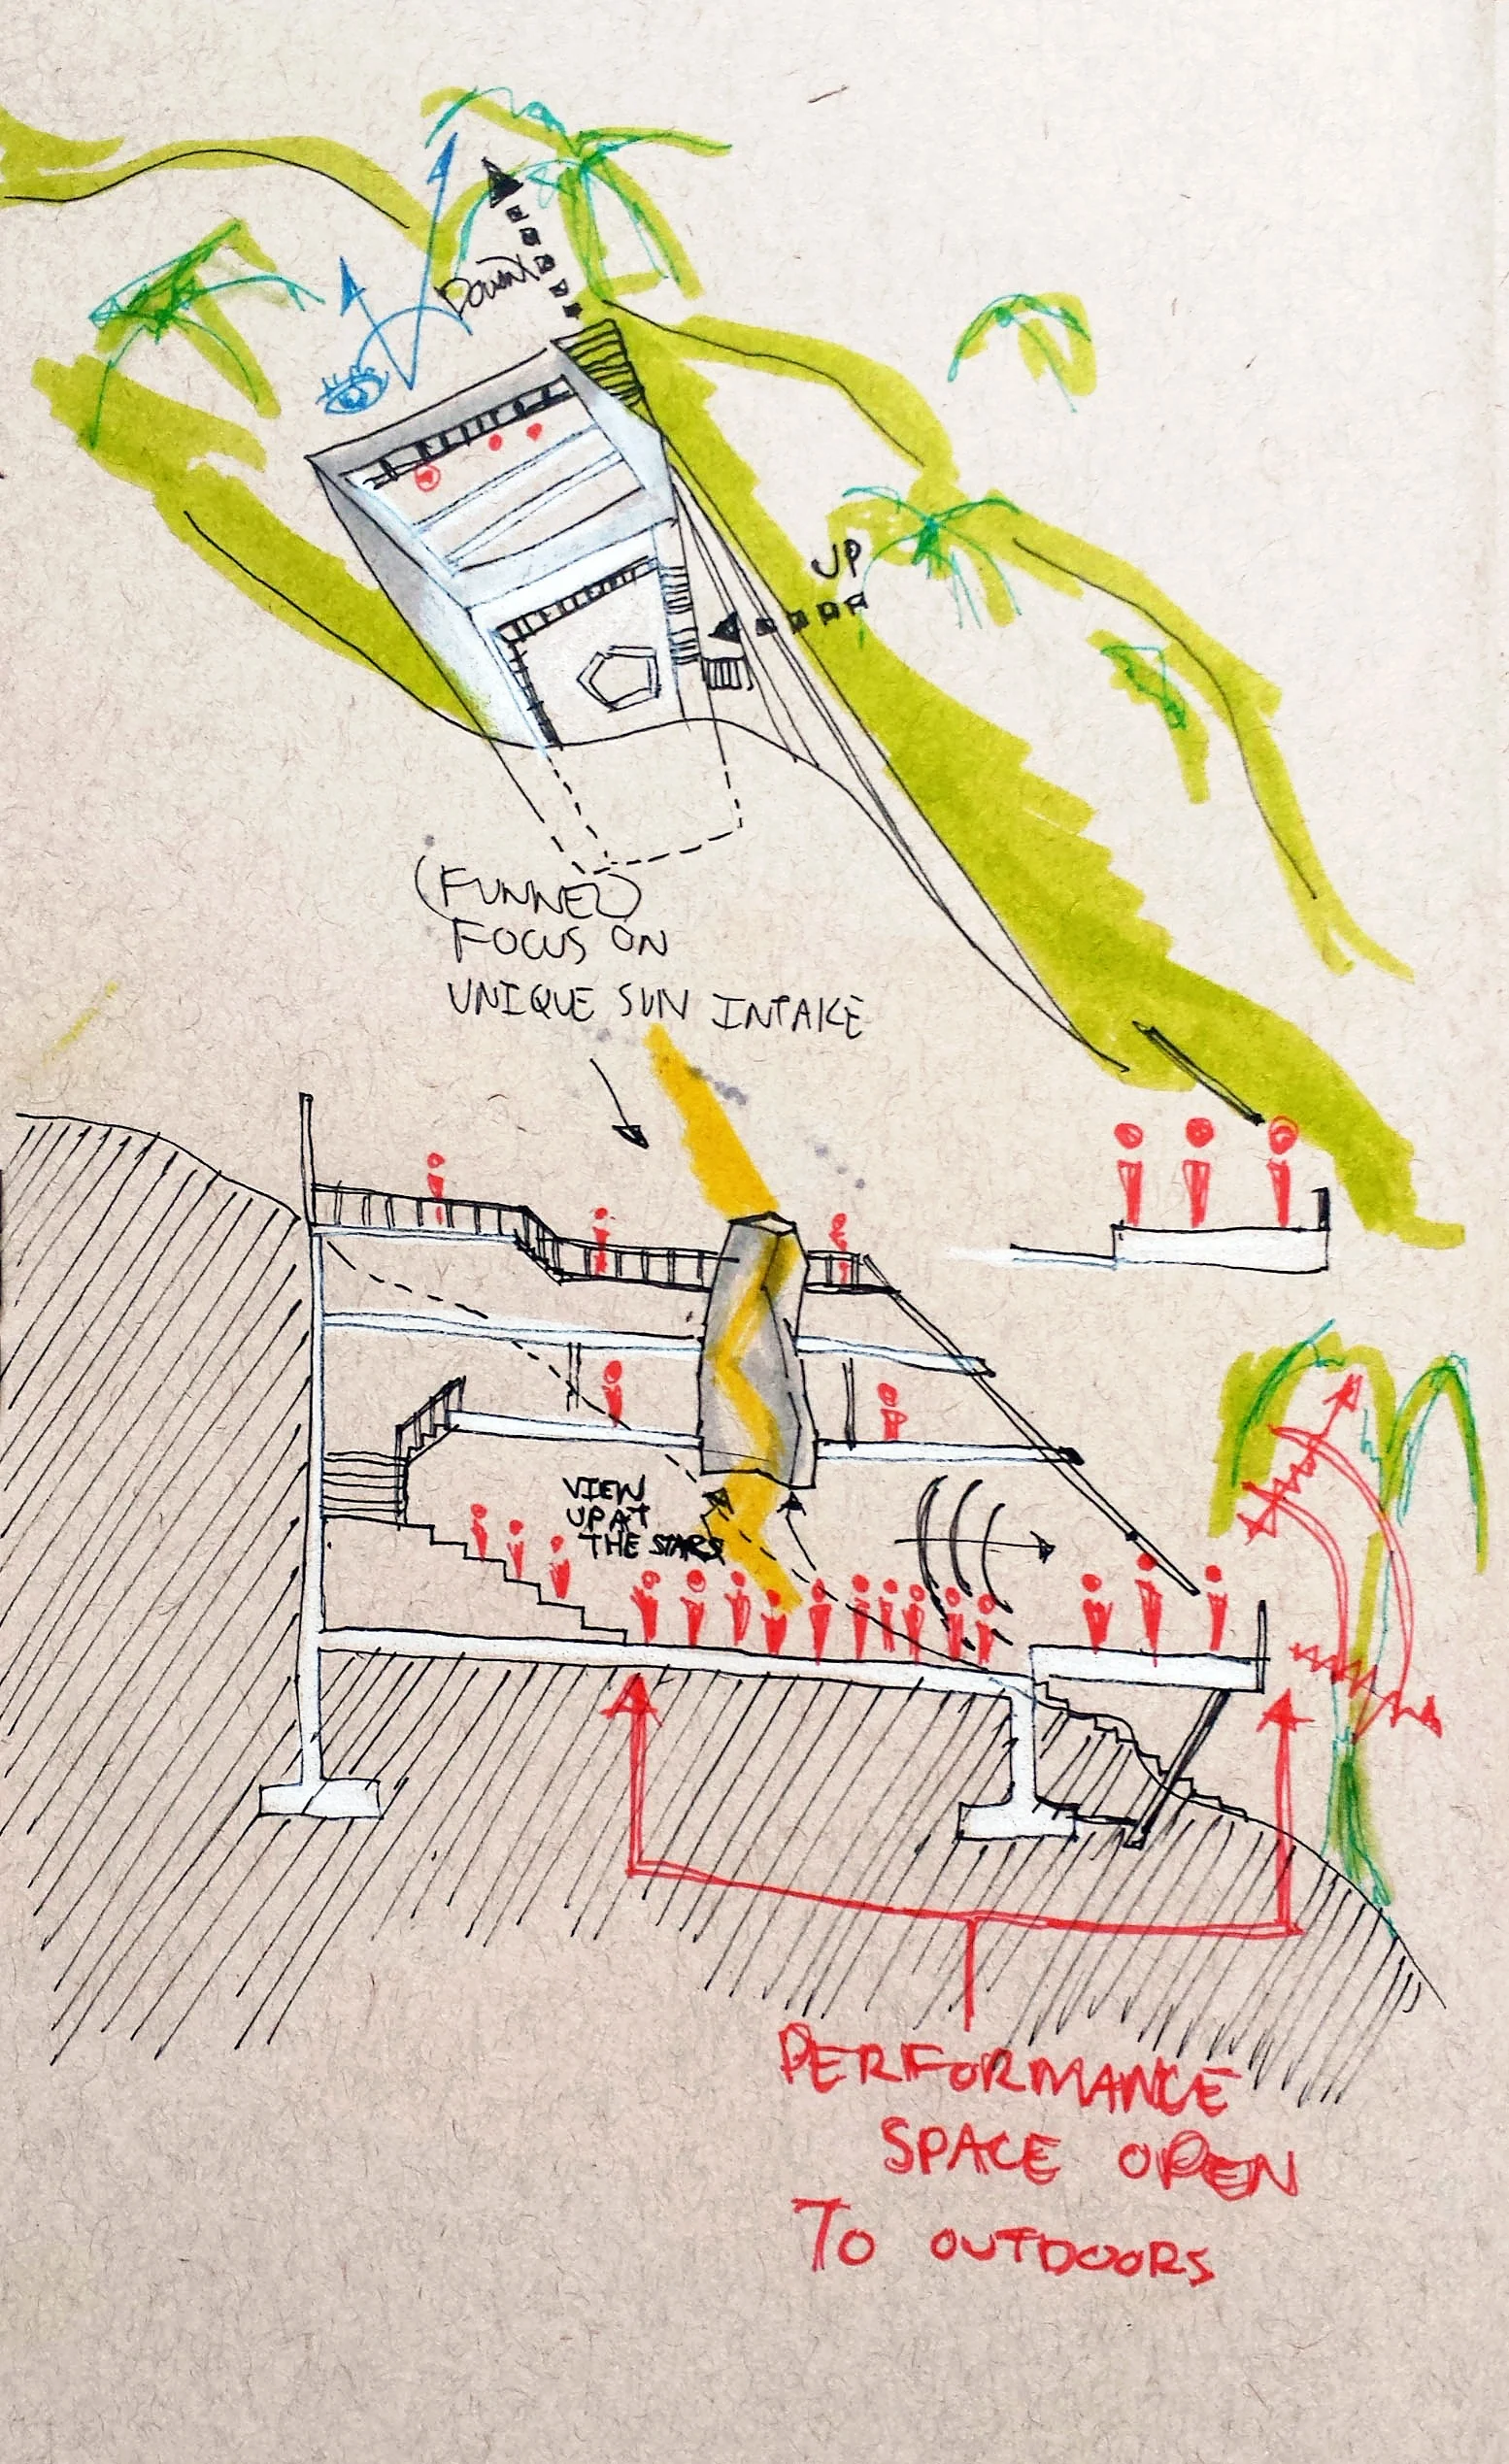 DOWN
UP
(FUNNEL)
FOCUS ON
UNIQUE SUN INTAKE
VIEW
UP AT
THE STARS
PERFORMANCE
SPACE OPEN
TO OUTDOORS